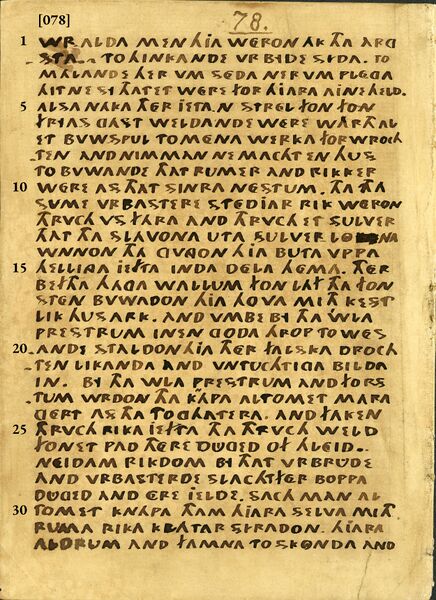 [078]
78.
1 WR ALDA MEN HIA WERON AK THA ARG
STA.. TO HINKANDE VR BIDE SIDA. TO
MALANDE HER VM SEDA NER VM PLEGA
HIT NE SI THAT ET WERE FOR HIARA AINEHELD.
5 ALSA NAKA THER IETA. N STREL FON FON
FRIAS GAST WELDANDE WERE WARTH AL
ET BUWSPUL TO MENA WERKA FORWROCH
TEN AND NIMMAN NE MACHT EN HUS
TO BUWANDE THAT RUMER AND RIKKER
10 WERE AS THAT SINRA NESTUM. THA THA
SUME VRBASTERE STEDIAR RIK WERON
THRUCH VS FARA AND THRUCH ET SULVER
THAT THA SLAVONA UTA SULVER LO NA
WNNON THA GVNGON HIA BUTA VPPA
15 HELLINGA IEFTHA INDA DELA HEMA. THER
BEFTHA HAGA WALLUM FON LAF THA FON
STEN BUWADON HIA HOVA MITH KEST
LIK HUSARK. AND VMBE BI THA WLA
PRESTRUM IN EN GODA HROP TO WES
20 ANDE STALDON HIA THER FALSKA DROCH
TEN LIKANDA AND VNTUCHTIGA BILDA
IN. BI THA WLA PRESTRUM AND FORS
TUM WRDON THA KNAPA ALTOMET MARA
GERT AS THA TOGHATERA. AND FAKEN
25 THRUCH RIKA IEFTHA THA THRUCH WELD
FON ET PAD THERE DUGED OF HLEID..
NEIDAM RIKDOM BI THAT VRBRUDE
AND VRBASTERDE SLACHT FER BOPPA
DUGED AND ERE IELDE. SACH MAN AL
30 TOMET KNAPA THAM HIARA SELVA MITH
RUMA RIKA KLATAR SIRADON. HIARA
ALDRUM AND FAMNA TO SKONDA AND